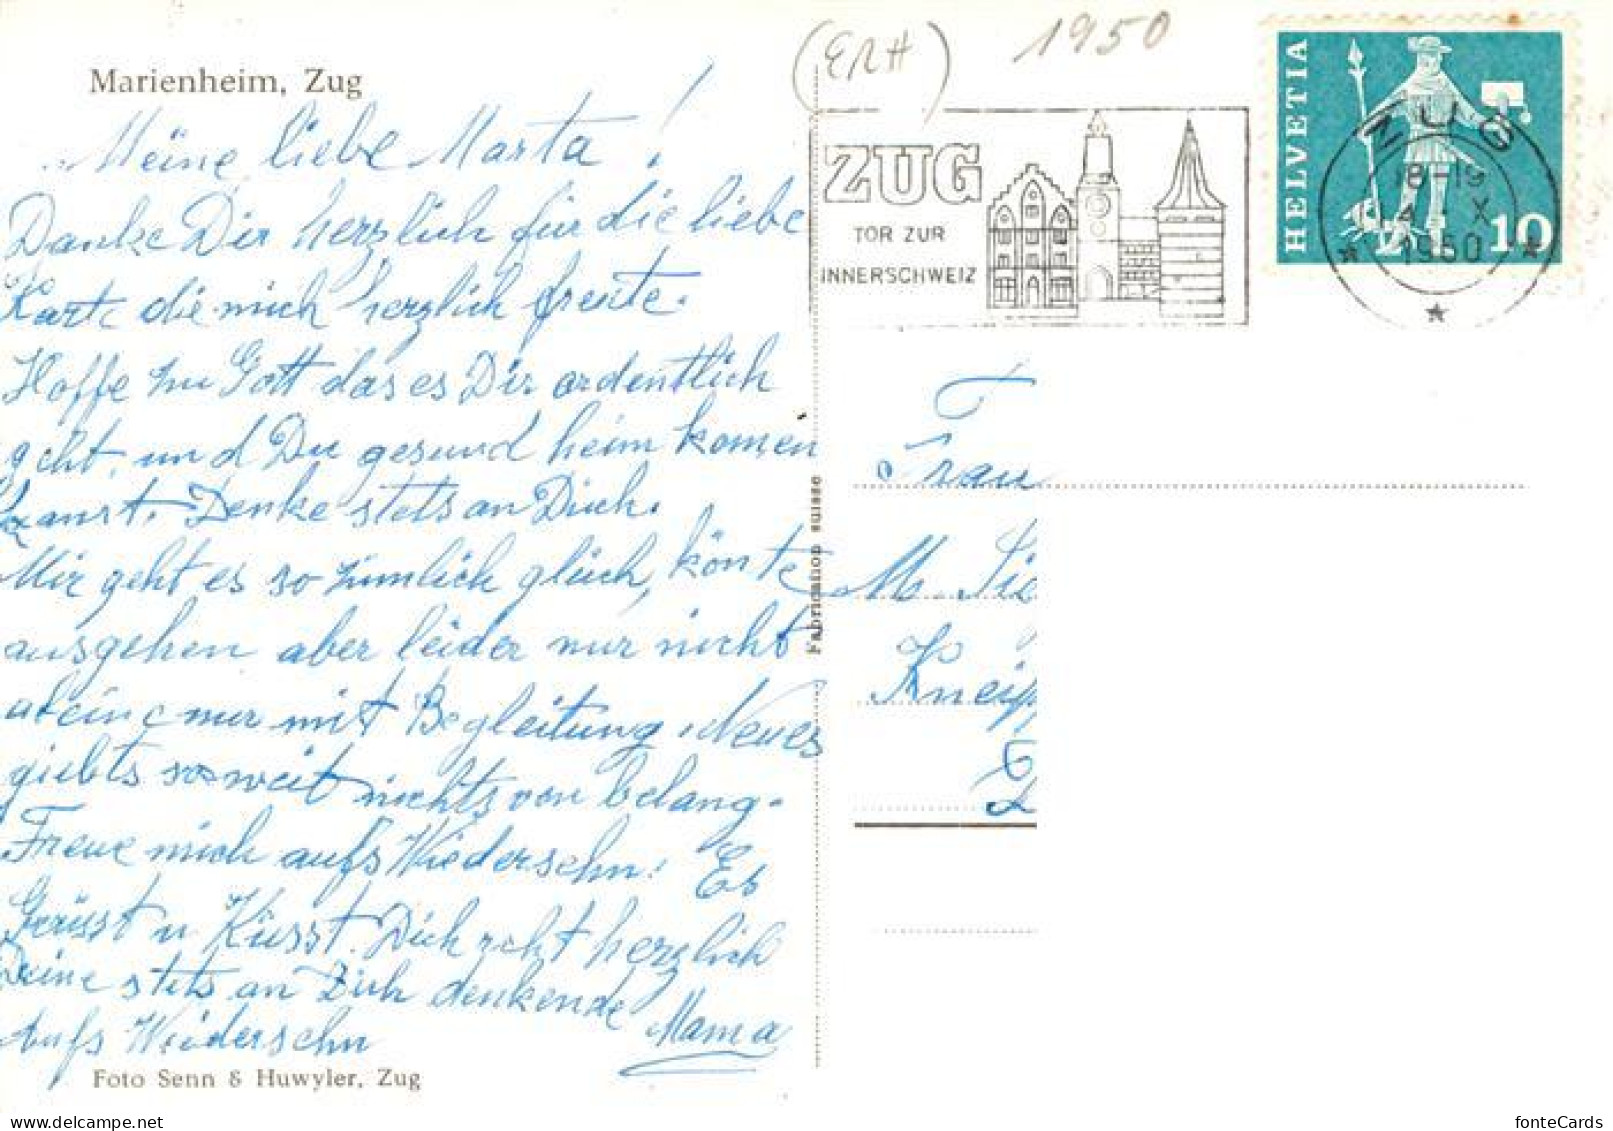 Marienheim, Zug
Meine liebe Marta!
Danke Dir herzlich für die liebe
Karte die mich herzlich freute.
Hoffe zu Gott das es Dir ordentlich
geht, und Du gesund heim komen
kanst. Denke stets an Dich.
Mir geht es so zimlich glich, könte
ausgehen aber leider nur nicht
aleine nur mit Begleitung. Neues
giebts soweit nichts von belang.
Freue mich aufs Wiedersehn. Es
Grüsst u Küsst Dich recht herzlich
Deine stets an Dich denkende
Mama
Aufs Wiedersehn
Foto Senn & Huwyler, Zug
Fabrication suisse
(ERH)
1950
ZUG
TOR ZUR
INNERSCHWEIZ
HELVETIA
10
ZUG
18-19
4. X
1960
Frau
M. Sie
Kneipp
fonteCards